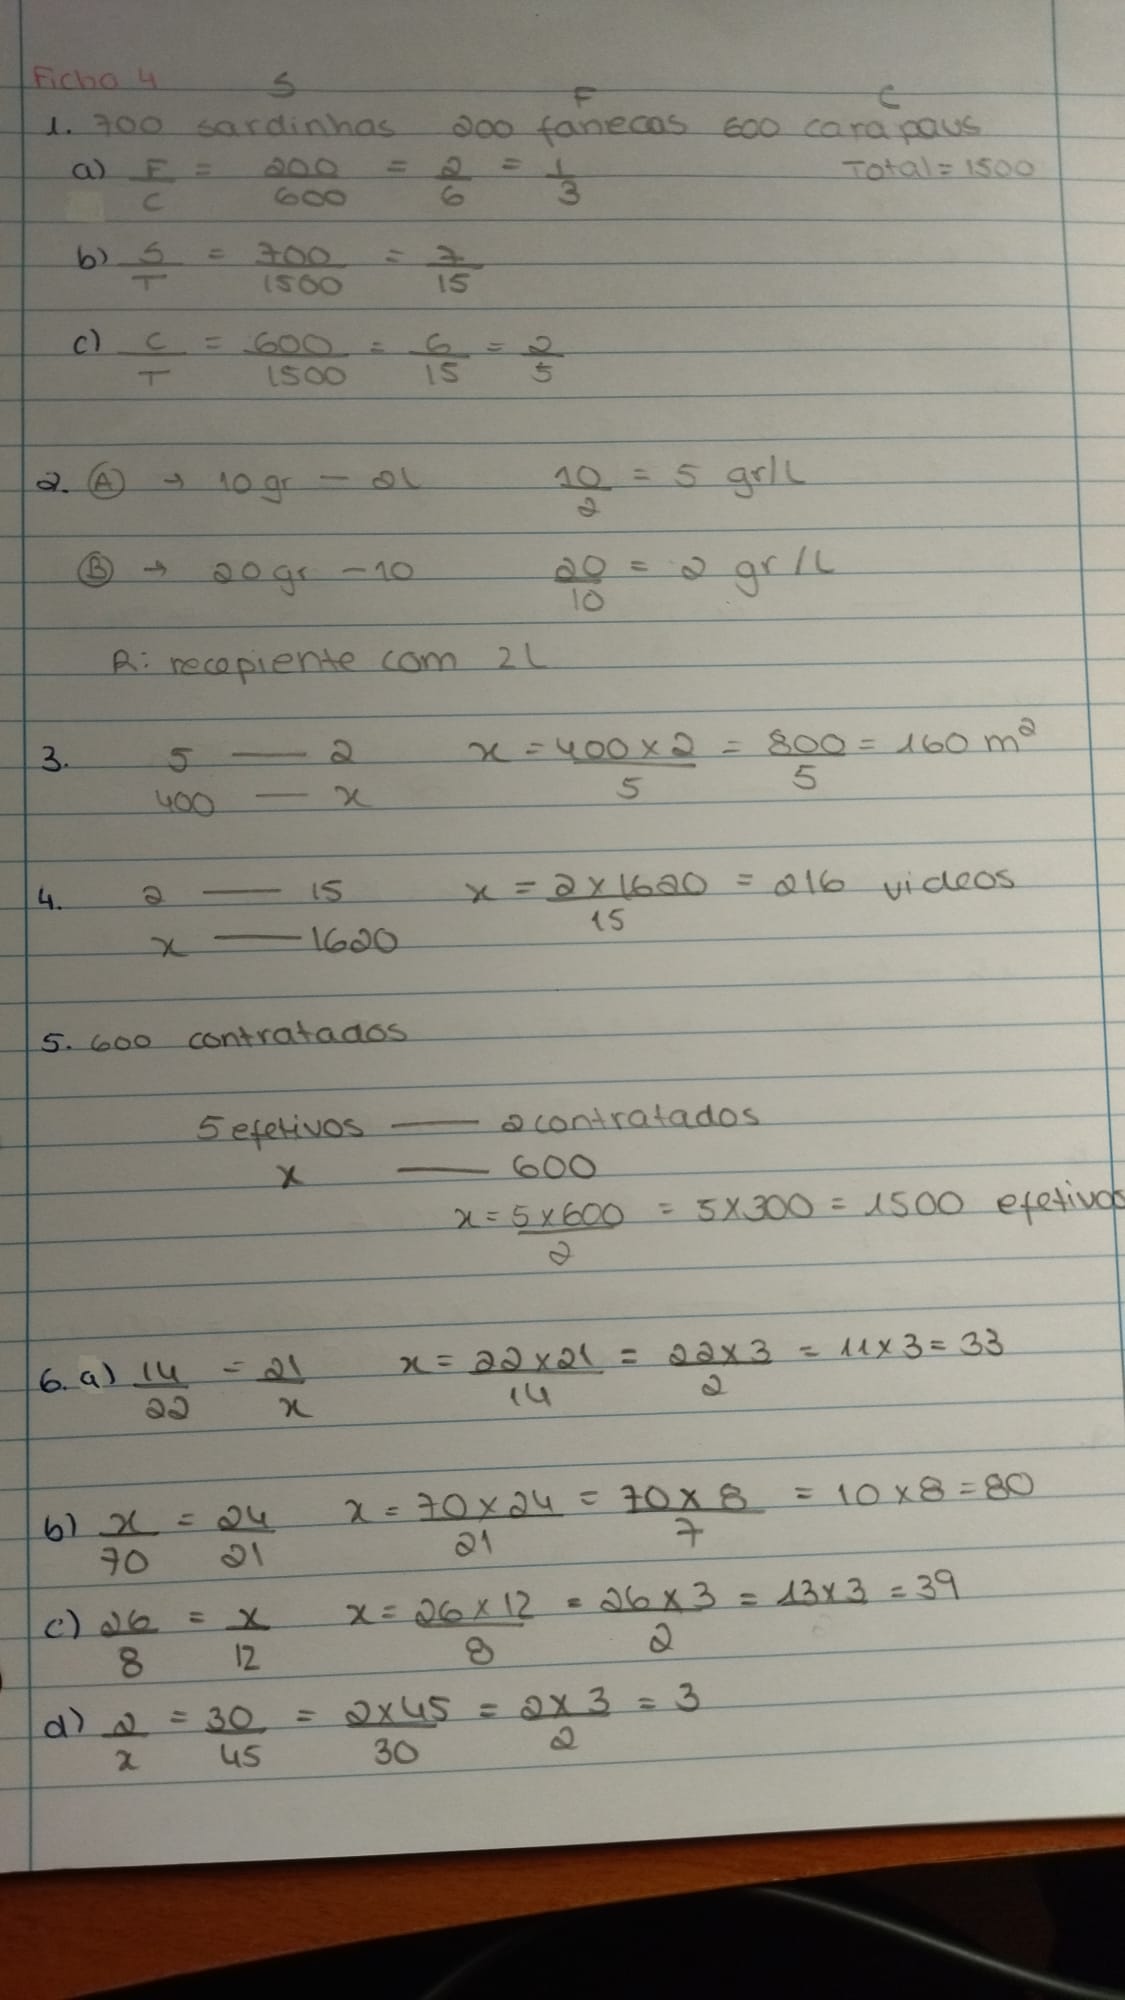 Ficha 4 S F C
1. 700 sardinhas 200 fanecas 600 carapaus
a) F/C = 200/600 = 2/6 = 1/3 Total = 1500
b) S/T = 700/1500 = 7/15
c) C/T = 600/1500 = 6/15 = 2/5
2. Ⓐ → 10gr - 2L 10/2 = 5 gr/L
Ⓑ → 20gr - 10 20/10 = 2 gr/L
R: recepiente com 2L
3. 5 — 2 x = 400 x 2/5 = 800/5 = 160 m²
400 — x
4. 2 — 15 x = 2 x 1620/15 = 216 videos
x — 1620
5. 600 contratados
5 efetivos — 2 contratados
x — 600
x = 5 x 600/2 = 5 x 300 = 1500 efetivos
6. a) 14/22 = 21/x x = 22 x 21/14 = 22 x 3/2 = 11 x 3 = 33
b) x/70 = 24/21 x = 70 x 24/21 = 70 x 8/7 = 10 x 8 = 80
c) 26/8 = x/12 x = 26 x 12/8 = 26 x 3/2 = 13 x 3 = 39
d) 2/x = 30/45 = 2 x 45/30 = 2 x 3/2 = 3